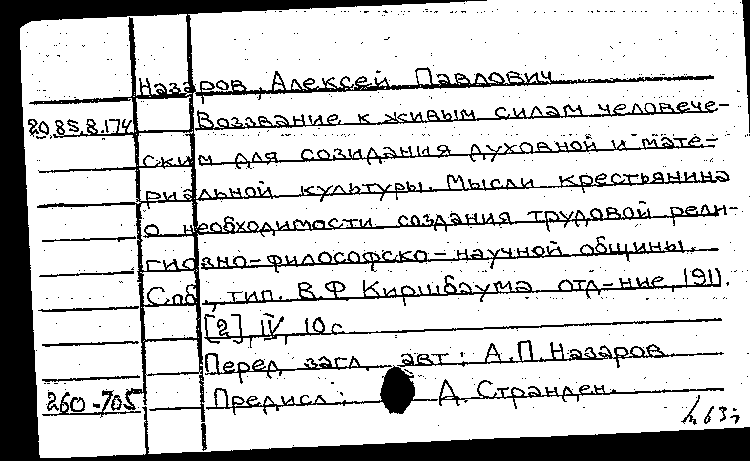 Назаров, Алексей Павлович
20.85.8.174
Воззвание к живым силам человече-
ским для созидания духовной и мате-
риальной культуры. Мысли крестьянина
о необходимости создания трудовой рели-
гиозно-философско-научной общины.
Спб., тип. В.Ф Киршбаума отд-ние, 1911.
[2], IV, 10 с.
Перед загл. авт: А.П. Назаров
260-705
Предисл: А. Странден.